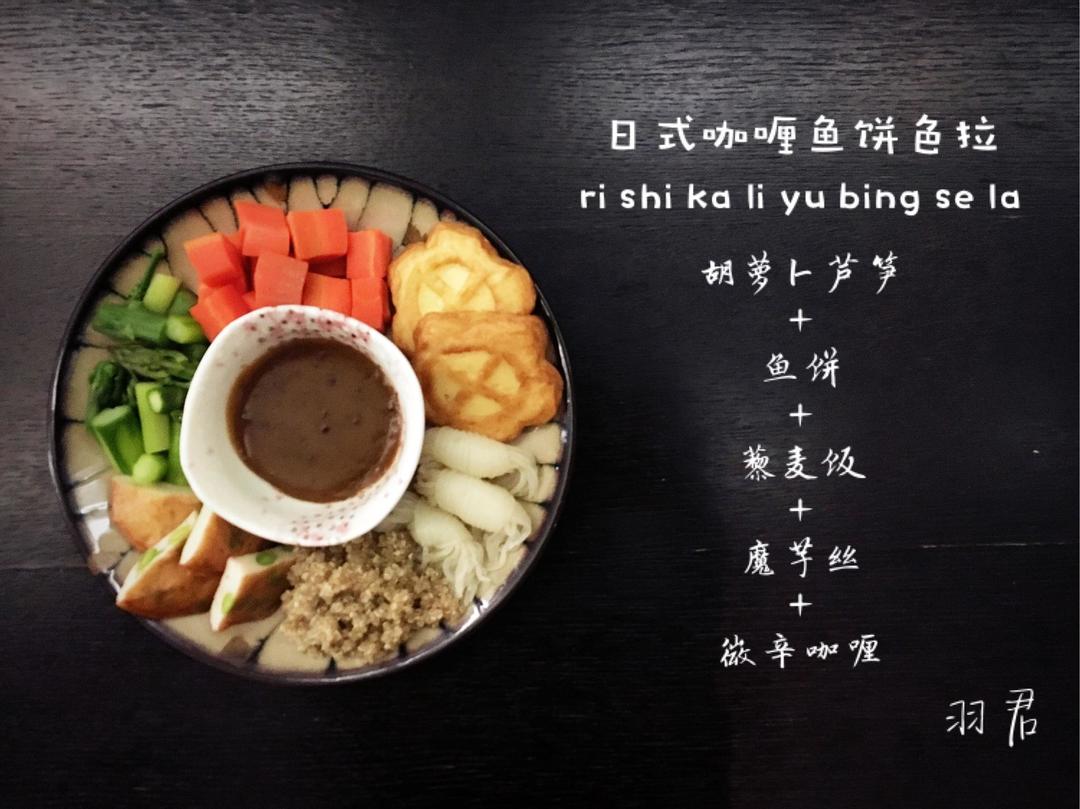 日式咖喱鱼饼色拉
ri shi ka li yu bing se la
胡萝卜芦笋
+
鱼饼
+
藜麦饭
+
魔芋丝
+
微辛咖喱
羽君